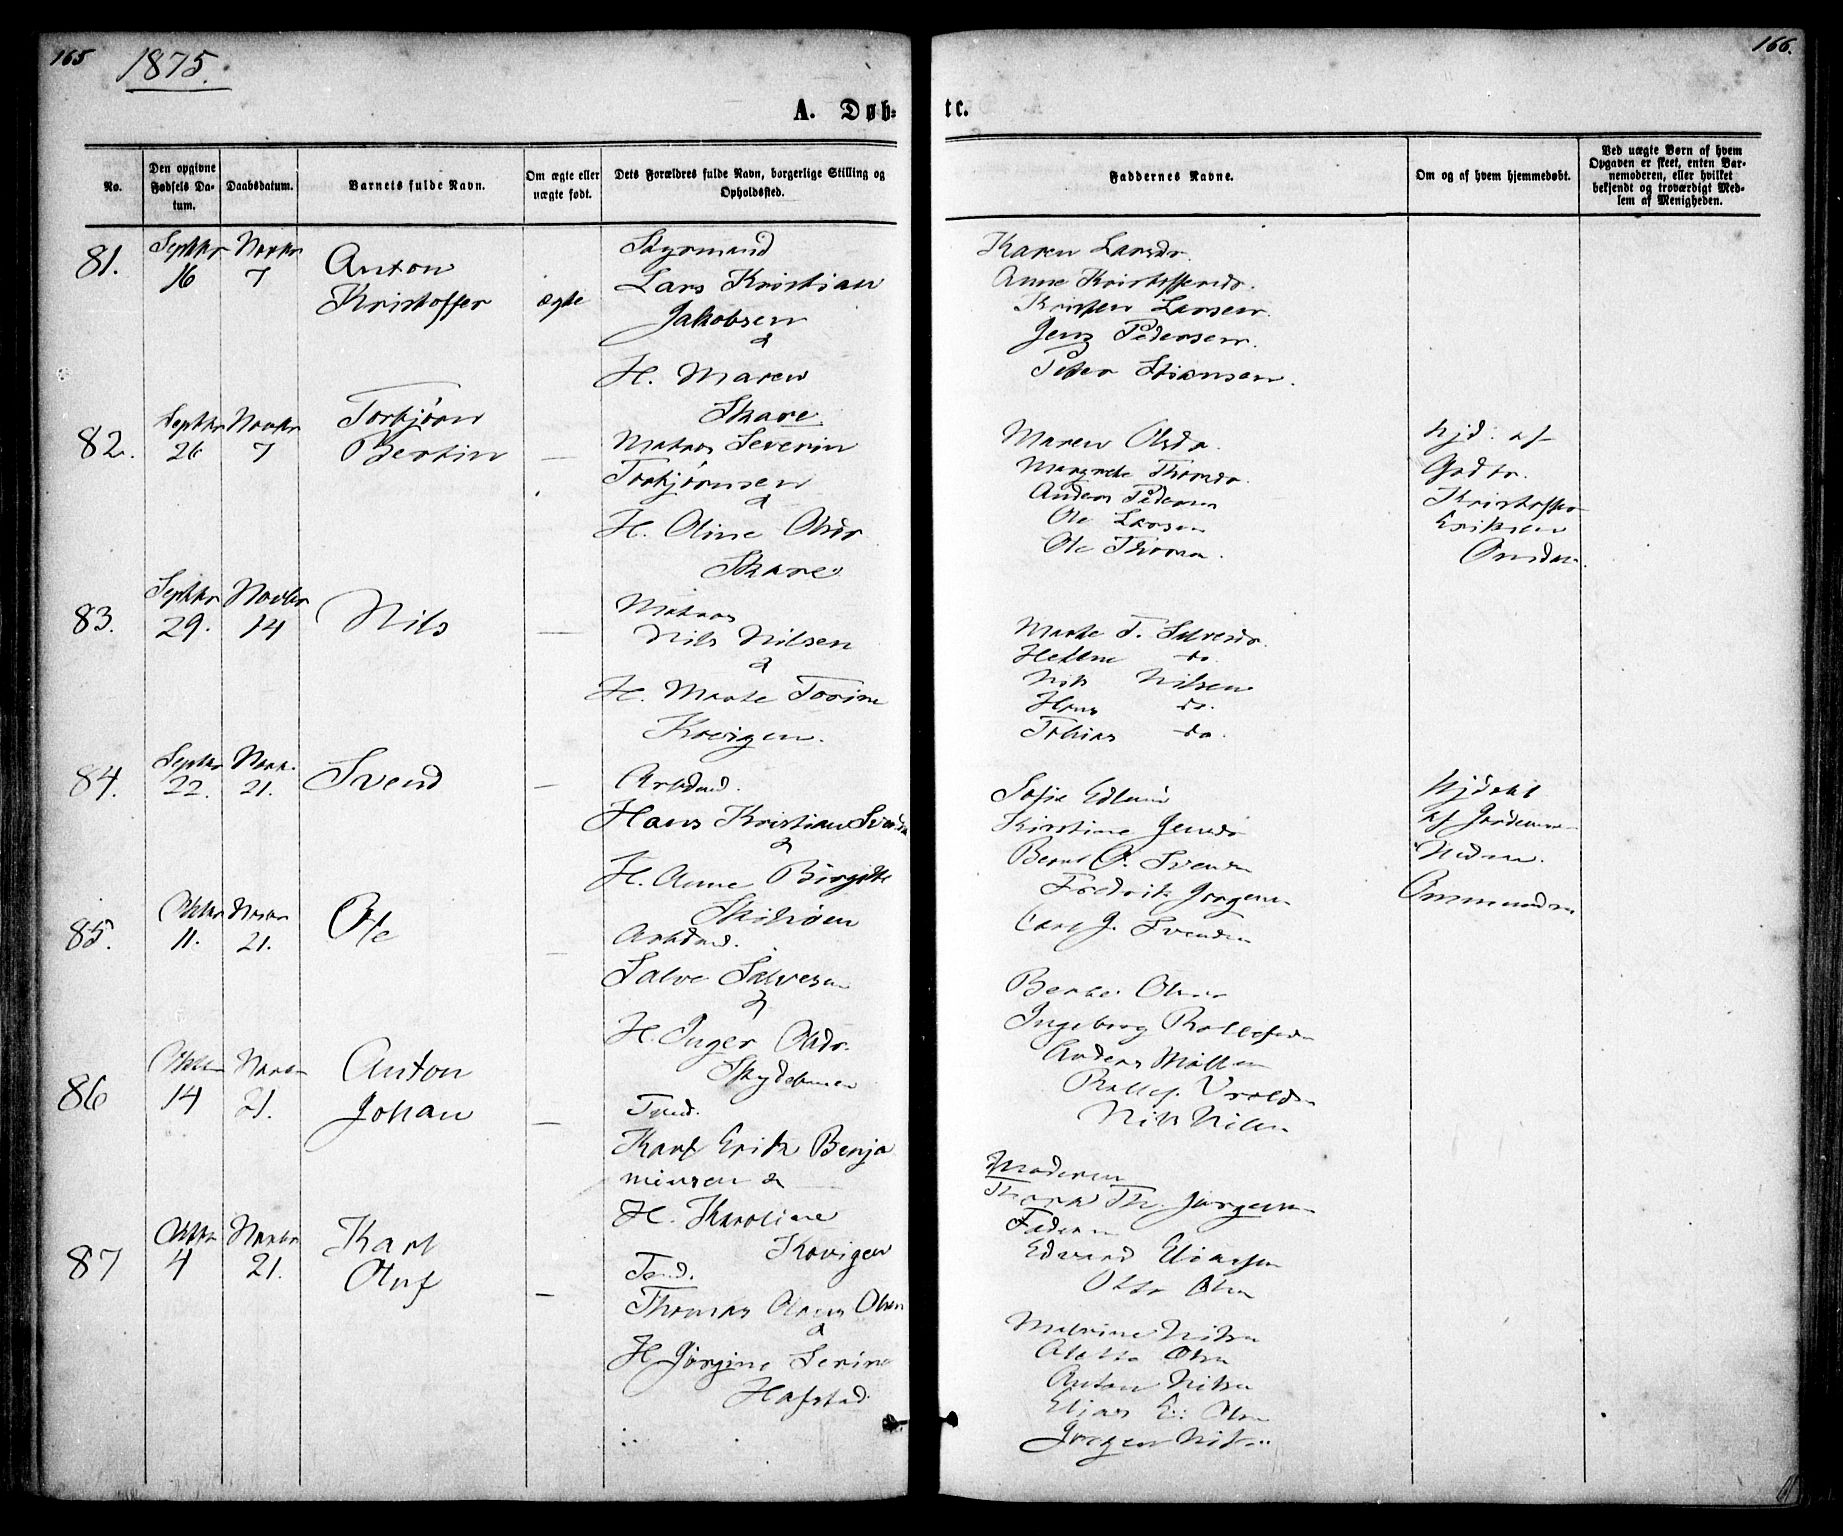 165
1875.
166.
A. Døb-
te.
No.
Den opgivne Fødsels Da-tum.
Daabsdatum.
Barnets fulde Navn.
Om ægte eller uægte født.
Dets Forældres fulde Navn, borgerlige Stilling og Opholdssted.
Faddernes Navne.
Om og af hvem hjemmedøbt.
Ved uægte Børn af hvem Opgaven er skeet, enten Bar-nemoderen, eller hvilket bekjendt og troværdigt Med-lem af Menigheden.
81.
Septbr 16
Novbr 7
Anton
Kristoffer
ægte
Styrmand
Lars Kristian
Jakobsen
&
H. Maren
Skare
Karen Larsdr.
Anne Kristoffersdr.
Kristen Larsen.
Jens Pedersen.
Peter Stiansen.
82.
Septbr 26
Novbr 7
Torbjørn
Bertin
—
Matros Severin
Torbjørnsen
&
H. Oline Olsdr
Skare
Maren Olsdr.
Margrete Thomdr.
Anders Pedersen
Ole Larsen
Ole Thomsn.
hjd. af
Gadfr.
Kristoffer
Eriksen
83.
Septbr 29.
Novbr 14
Nils
—
Matros
Nils Nilsen
&
H. Marte Torine
Kovigen.
Marte T. Salvesdr.
Hellene do.
Nils Nilsen
Hans do.
Tobias do.
84.
Septbr 22.
Novb. 21.
Svend
—
Arbdmd.
Hans Kristian Svends
&
H. Anne Birgitte
Sofie Edlund
Kirstine Jensdr
Bernt O. Svends
Fredrik Jørgens
Carl J. Svends
hjdøbt
af Jordemor
85.
Oktbr 11.
Novbr 21.
Ole
—
Arbdmd.
Salve Salvesen
&
H. Inger Olsdr.
Berte Olsdr
Ingeborg Rollefsdr
Anders
Rollef
Nils Nilsen
86
Oktbr 14
Novbr 21.
Anton
Johan
—
Tmd.
Karl Erik Benja
minsen &
H. Karoline
Kovigen
Moderen
Th. Jørgens
Faderen
Edvard Eliassen
Otto Olsn
87
Oktbr 4
Novbr 21.
Karl
Oluf
—
Tmd.
Thomas Olaus Olsen
&
H. Jørgine Serine
Hafstad
Malvine Nilsn
Aletta Olsn
Anton Nilsn
Elias E. Olsn
Jørgen Nilsn